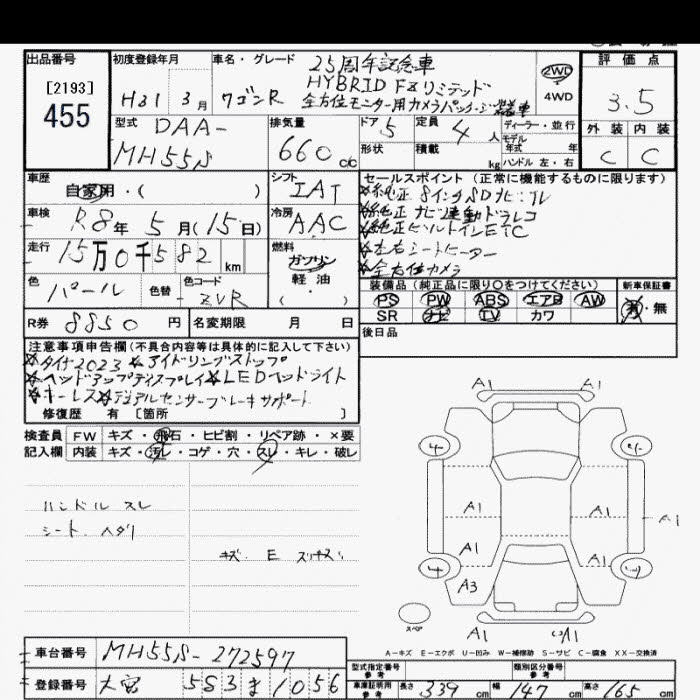 出品番号
[2193]
455
初度登録年月
H31 3月
車名・グレード
25周年記念車
HYBRID FZリミテッド
ワゴンR 全方位モニター用カメラパッケージ装着車
2WD
4WD
評価点
3.5
外装 内装
C C
型式
DAA-
MH55S
排気量
660 cc
ドア 5
形状
定員 4人
積載 kg
ディーラー・並行
モデル
年式 年
ハンドル 左・右
車歴
自家用・( )
シフト
IAT
車検
R8年5月(15日)
冷房
AAC
走行
15万0千582 km
燃料
ガソリン
軽油
( )
色
パール
色替
色コード
ZVR
R券 8850 円
名変期限 月 日
セールスポイント(正常に機能するものに限ります)
☆純正8インチSDナビ
☆純正ナビ連動ドラレコ
☆純正ビルトインETC
☆左右シートヒーター
☆全方位カメラ
装備品(純正品に限り〇をつけてください)
PS PW ABS エアB AW
SR ナビ TV カワ
新車保証書
有・無
後日品
注意事項申告欄(不具合内容等は具体的に記入して下さい)
☆タイヤ2023 ☆アイドリングストップ
☆ヘッドアップディスプレイ☆LEDヘッドライト
☆キーレス☆デュアルセンサーブレーキサポート
修復歴 有 [箇所 ]
検査員
記入欄
FW キズ・飛石・ヒビ割・リペア跡・×要
内装 キズ・汚レ・コゲ・穴・スレ・キレ・破レ
ハンドル スレ
シート ヘタリ
キズ E スリキズ
A1 A1
4
A1 A1 A1
A1 A1
4
A3
スペア
A1
A1
A-キズ E-エクボ U-凹み W-補修跡 S-サビ C-腐食 XX-交換済
車台番号 MH55S-272597
登録番号 大宮 583 ま 1056
型式指定番号
参考
類別区分番号
参考
車庫証明用
参考
長さ 339 cm 幅 147 cm 高さ 165 cm